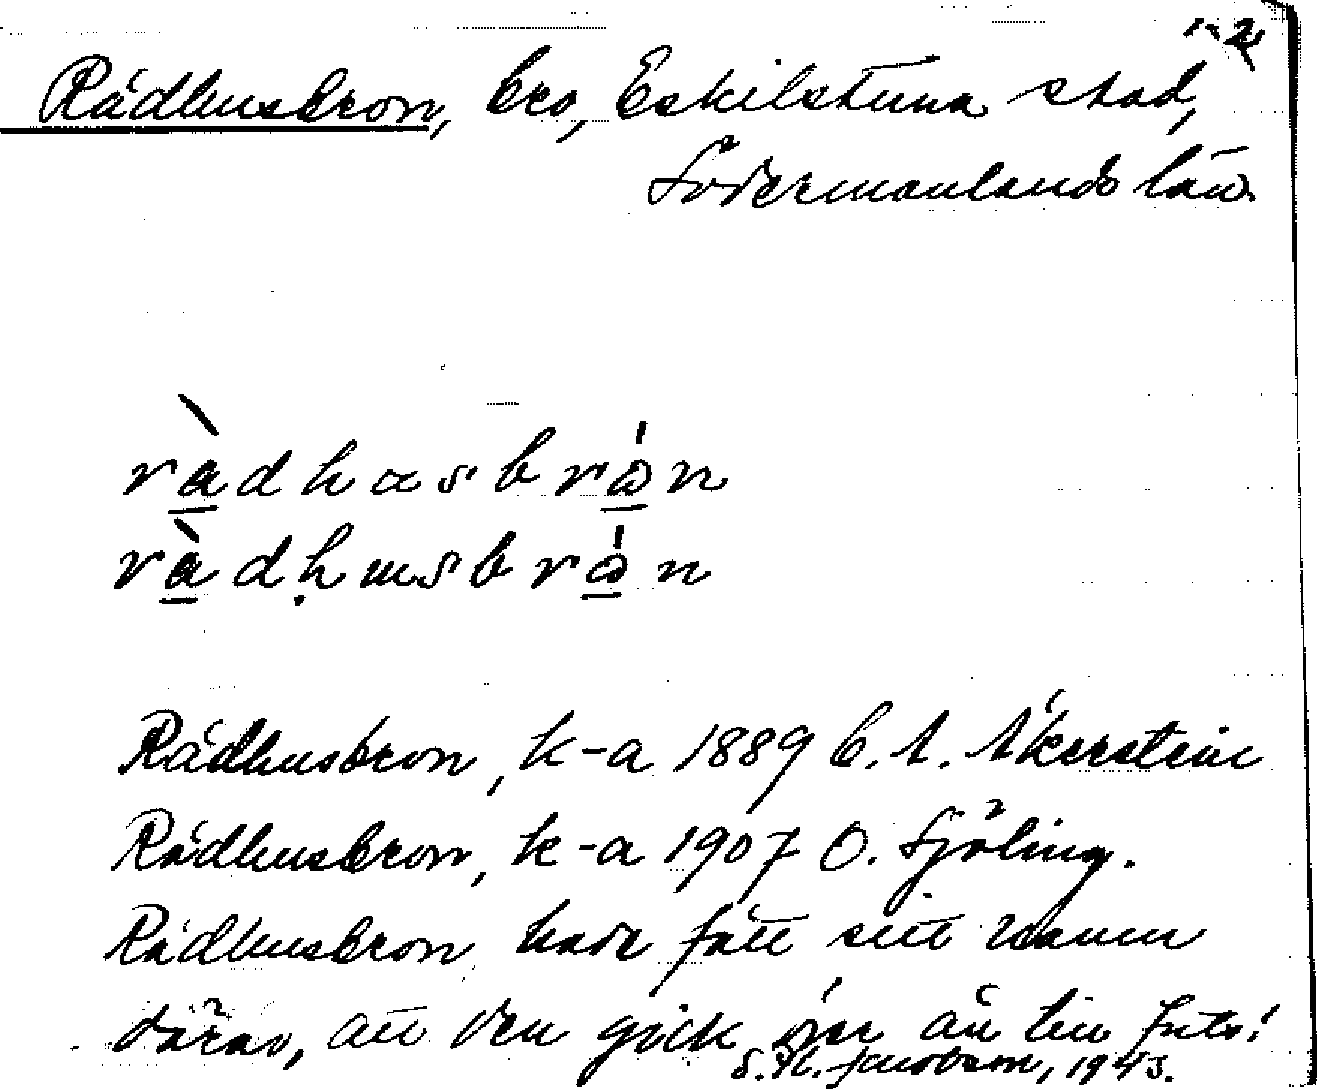 1-2
Rådhusbron, bro, Eskilstuna stad,
Södermanlands län.
Rådhusbron, k-a 1889 C. A. Åkerstein
Rådhusbron, k-a 1907 O. Sjöling.
Rådhusbron hade fått sitt namn
därav, att den gick över ån till
S. H. Jacobson, 1943.